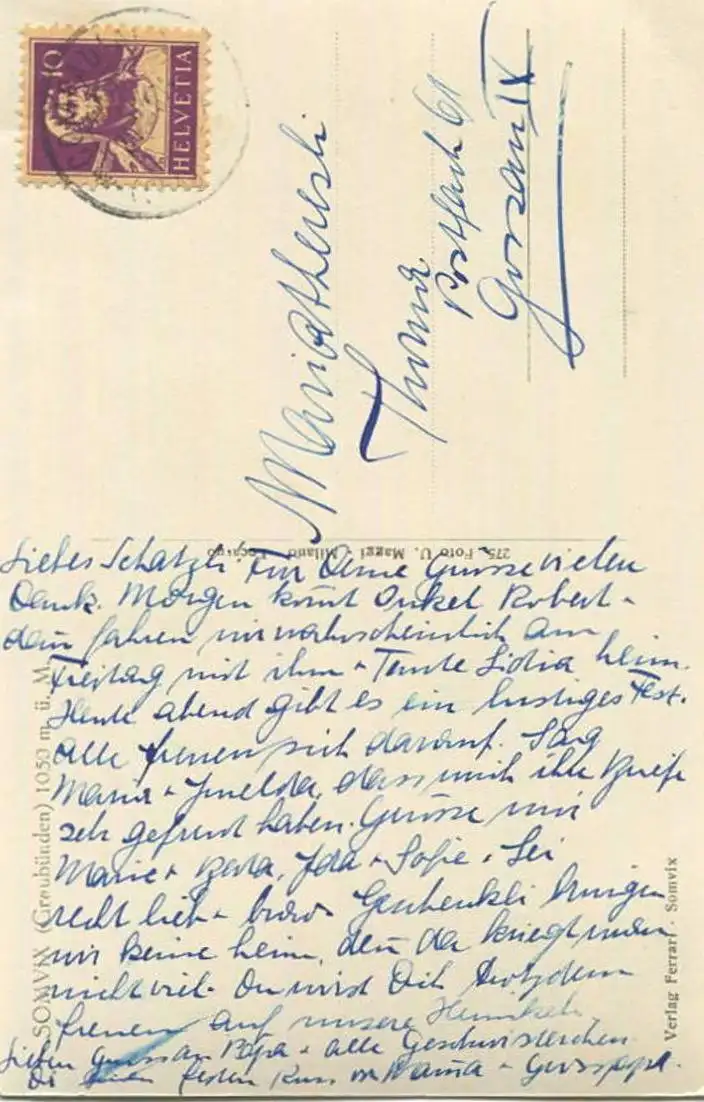 10
HELVETIA
Mariatheresli
Postfach 61
Gossau IX
275. Foto U. Maggi - Milano Locarno
Liebes Schatzli! Für Deine Grüsse vielen
Dank. Morgen komt Onkel Robert -
dan fahren wir wahrscheinlich am
Freitag mit ihm + Tante Lidia heim.
Heute abend gibt es ein lustiges Fest.
Alle freuen sich darauf. Sag
Maria + Imelda, dass mich ihre Briefe
sehr gefreut haben. Grüsse mir
Marie + Berta, Ida + Sofie. Sei
recht lieb + brav. Geschenkli bringen
wir keine heim, den da kriegt man
nicht viel. Du wirst Dich trotzdem
freuen auf unsere Heimkehr.
Lieben Gruss an Papa + alle Geschwisterchen.
Dir einen festen Kuss von Mama + Grosspapa.
SOMVIX (Graubünden) 1050 m. ü. M.
Verlag Ferrari - Somvix